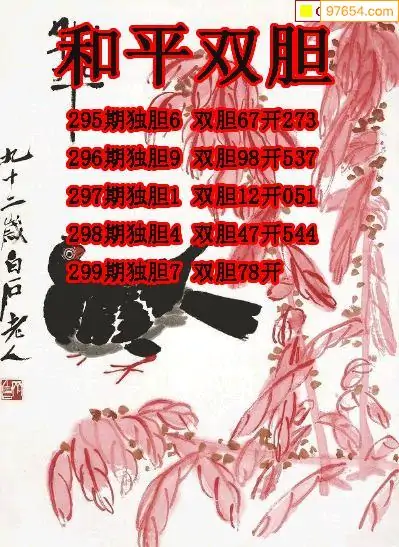 97654.com
和平双胆
295期独胆6 双胆67开273
296期独胆9 双胆98开537
297期独胆1 双胆12开051
298期独胆4 双胆47开544
299期独胆7 双胆78开
九十二岁白石老人